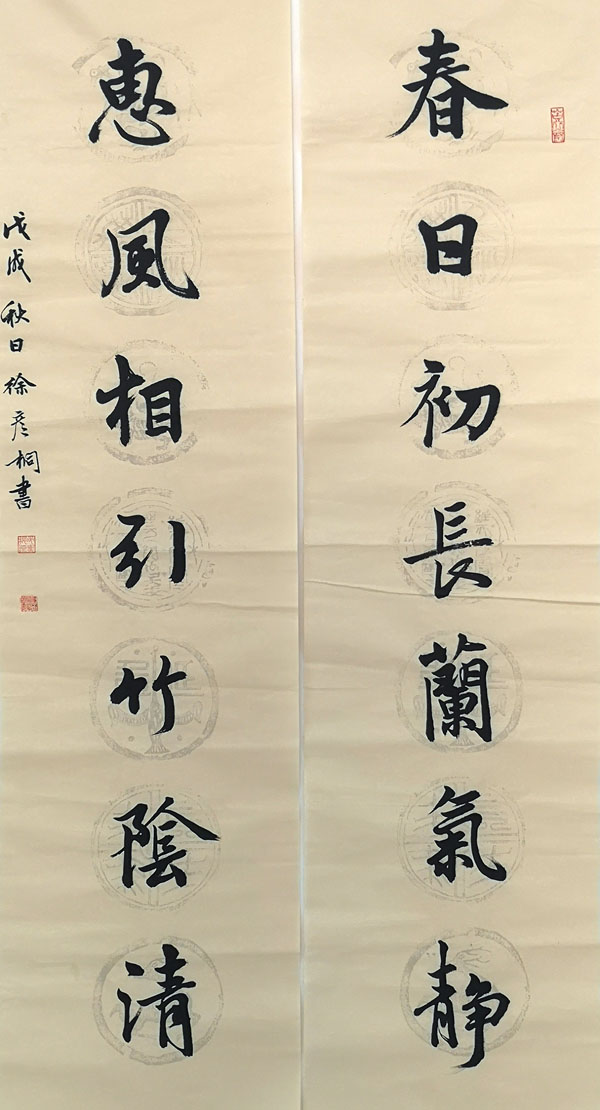 春日初長蘭氣静
惠風相引竹陰清
戊戌秋日徐彦桐書